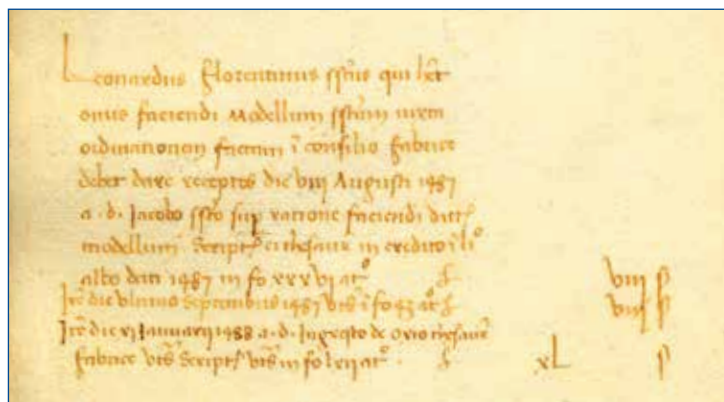 Leonardus florentinus sstus qui het
onus faciendi modellum sstum iuxta
ordinationem factam i consilio fabrice
debet dare receptos die viii Augusti 1487
a . d. Jacobo ssto sup ratione faciendi dict
modellum script ei thesaur in credito i li°
albo dati 1487 in fo xxxvi at° £ viii s
Ite die ultimo Septembris 1487 uts i fo 43 at° £ viii s
Ite die xi Januarii 1488 a . d. de thesaur
fabrice uts script uts in fo lxii at° . £ xL s